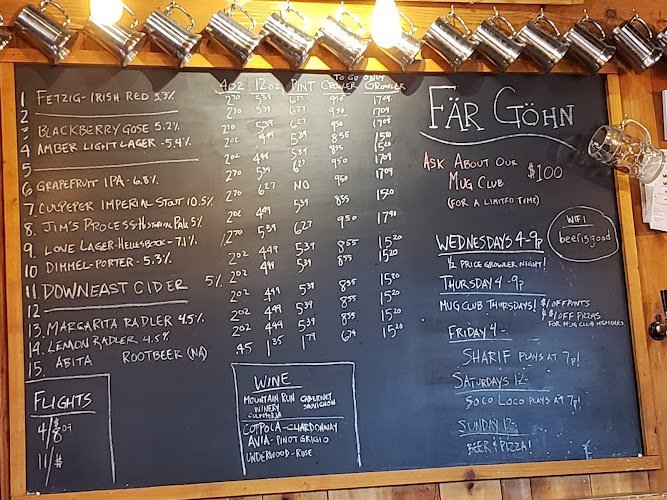 TO GO ONLY
4OZ 12OZ PINT CROWLER GROWLER
1 FETZIG-IRISH RED 5.3% 2.70 5.39 6.27 9.50 17.09
2 2.70 5.39 6.27 9.50 17.09
3 BLACKBERRY GOSE 5.2% 2.70 5.39 6.27 9.50 17.09
4 AMBER LIGHT LAGER -5.4% 2.02 4.49 5.39 8.55 15.20
5 2.02 4.49 5.39 8.55 15.20
6 GRAPEFRUIT IPA-6.8% 2.70 5.39 6.27 9.50 17.09
7. CULPEPER IMPERIAL STOUT 10.5% 2.70 6.27 NO
8 JIM'S PROCESS-HISTORICAL PALE 5% 2.02 4.49 5.39 8.55 15.20
9 LOVE LAGER-HELLESBOCK-7.1% 2.70 5.39 6.27 9.50
10 DIMMEL-PORTER-5.3% 2.02 4.49 5.39 8.55 15.20
11 DOWNEAST CIDER 5% 2.02 4.49 5.39 8.55 15.20
12 2.02 4.49 5.39 8.55 15.20
13. MARGARITA RADLER 4.5% 2.02 4.49 5.39 8.55 15.20
14. LEMON RADLER 4.5% 2.02 4.49 5.39 8.55 15.20
15. ABITA ROOTBEER (NA) .45 1.35 1.79 6.74
FLIGHTS
4/$8.09
11/$
WINE
MOUNTAIN RUN WINERY CULPEPER CABERNET SAUVIGNON
COPPOLA-CHARDONNAY
AVIA-PINOT GRIGIO
UNDERWOOD-ROSE
FÄR GÖHN
ASK ABOUT OUR
MUG CLUB $100
(FOR A LIMITED TIME)
WIFI
beerisgood
WEDNESDAYS 4-9p
1/2 PRICE GROWLER NIGHT!
THURSDAY 4-9p
MUG CLUB THURSDAYS! $1 OFF PINTS
OFF PIZZAS
FOR MUG CLUB MEMBERS
FRIDAY 4-
SHARIF PLAYS AT 7p!
SATURDAYS 12-
SOCO LOCO PLAYS AT 7p!
SUNDAY 12-
BEER & PIZZA!